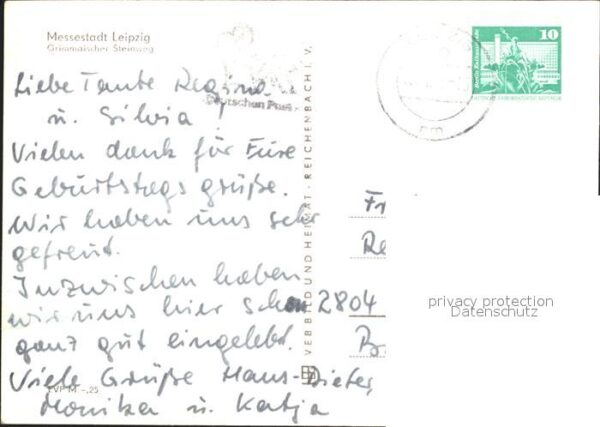 Messestadt Leipzig
Grimmaischer Steinweg
Liebe Tante Regina
u. Silvia!
Vielen dank für Eure
Geburtstags grüße.
Wir haben uns sehr
gefreut.
Inzwischen haben
wir uns hier schon
ganz gut eingelebt.
Viele Grüße Hans-Dieter,
Monika u. Katja
EVP M -,25
Deutschen Post
VEB BILD UND HEIMAT · REICHENBACH I. V.
10
DEUTSCHE DEMOKRATISCHE REPUBLIK
Fr
Re
2804
B
privacy protection
Datenschutz